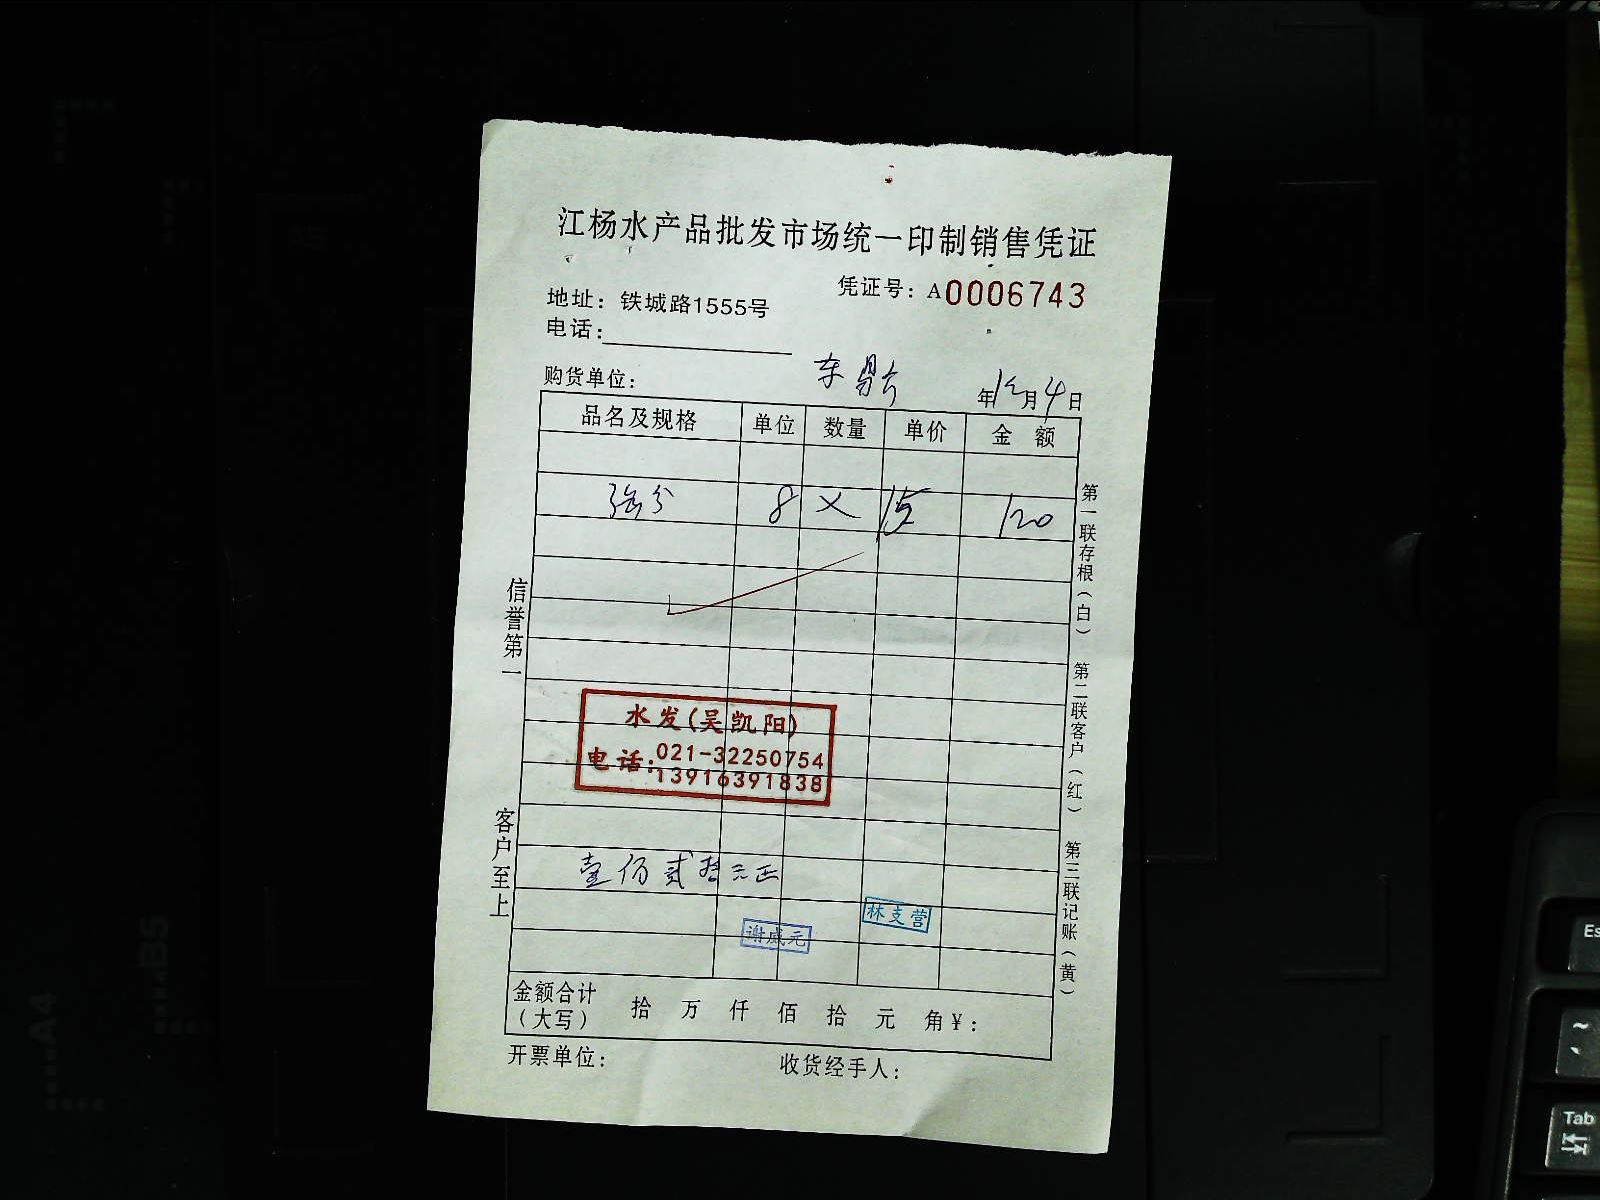 江杨水产品批发市场统一印制销售凭证
凭证号：A0006743
地址：铁城路1555号
电话：
购货单位：
年12月4日
品名及规格 单位 数量 单价 金额
8 × 15 120
水发(吴凯阳)
电话：021-32250754
13916391838
壹佰贰拾元正
林支营
谢威元
金额合计（大写） 拾 万 仟 佰 拾 元 角¥：
开票单位： 收货经手人：
信誉第一
客户至上
第一联存根（白） 第二联客户（红） 第三联记账（黄）
A4
B5
Es
~
Tab